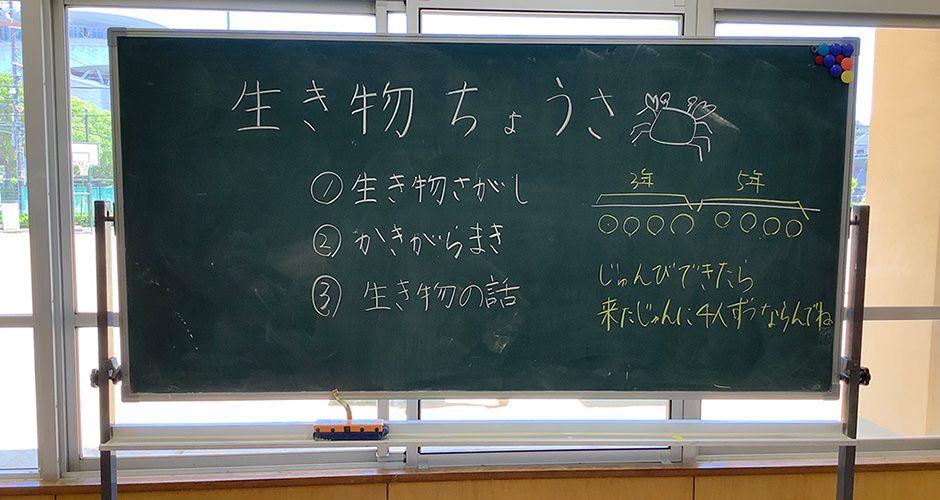 生き物ちょうさ
①生き物さがし
②かきがらまき
③生き物の話
3年 5年
じゅんびできたら
来たじゅんに4人ずつならんでね